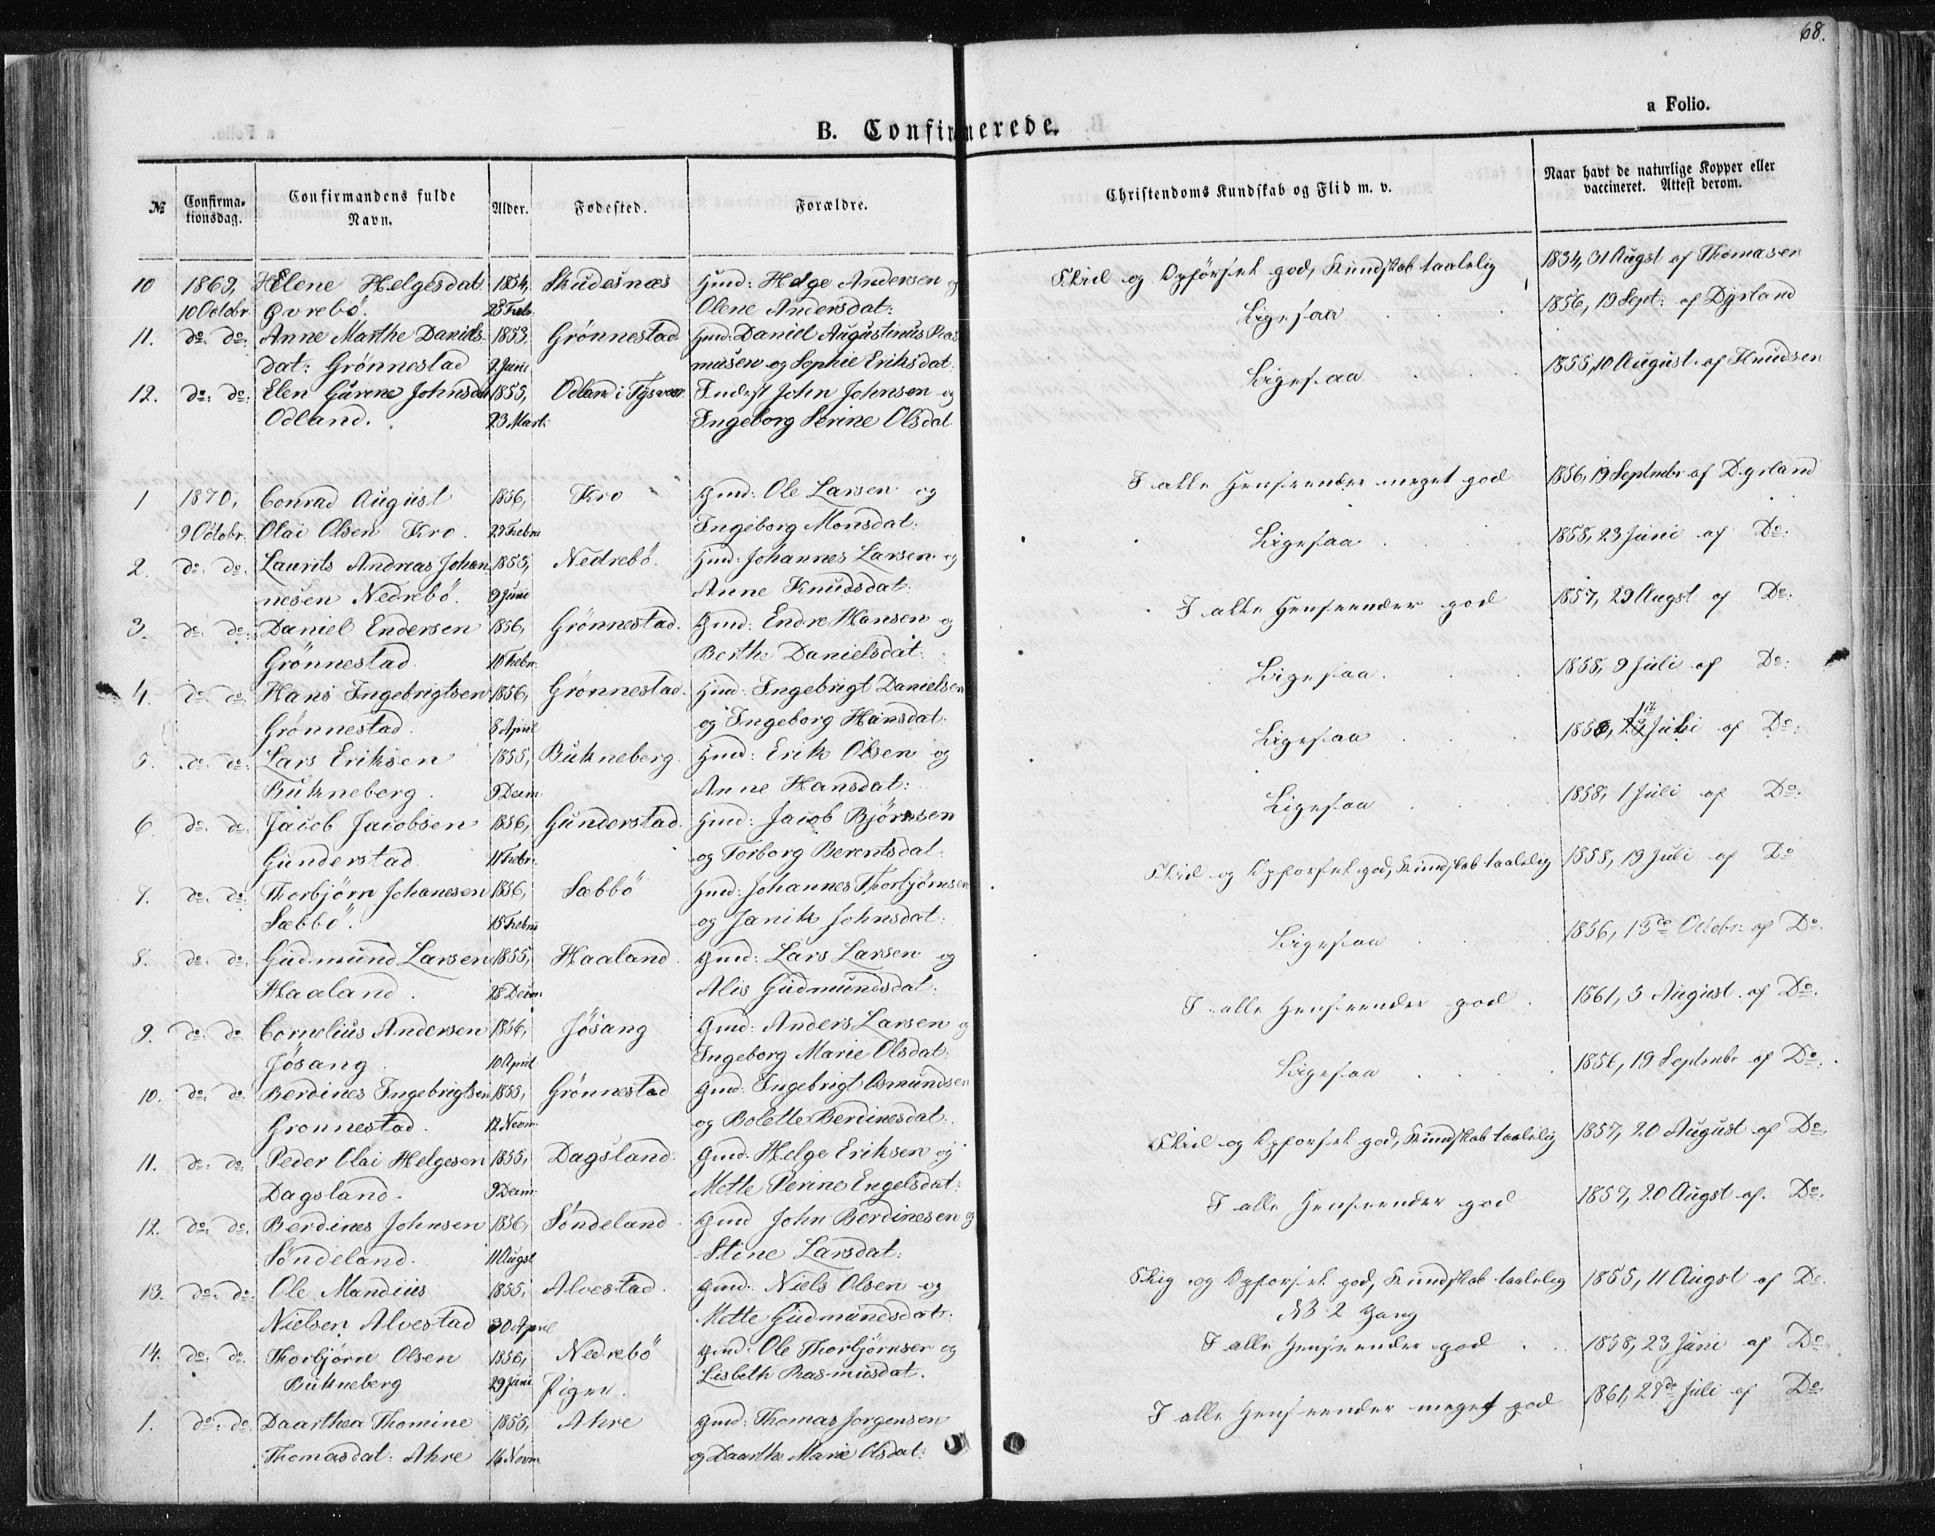 68.
a Folio.
B. Confirmerede.
№
Confirma-
tionsdag.
Confirmandens fulde
Navn.
Alder.
Fødested.
Forældre.
Christendoms Kundskab og Flid m. v.
Naar havt de naturlige Kopper eller
vaccineret. Attest derom.
10 1869, Helene Helgesdat: 1854, Skudesnæs Gmd: Helge Andersen og Flid og Opførsel god, Kundskab taalelig 1834, 31 Augst af Thomasen
10 Octobr Qvrebö. 28 Feb. Olene Andersdat:
11. do. do: Anne Marthe Daniels- 1853, Grönnestad Gmd: Daniel Augustinus Ras Ligesaa 1856, 19 Sept: af Dyrland
dat: Grönnestad 2 Juni musen og Sophie Eriksdat:
12. do: do: Elen Gurene Johnsdat 1855, Odland i Tysvær Inderst John Johnsen og Ligesaa 1855, 10 August af Knudsen
Odland. 23 Mart: Ingeborg Serine Olsdat
1 1870, Conrad August 1856, Kro Gmd: Ole Larsen og I alle Henseender meget god 1856, 19 Septnebr af Dyrland
9 Octobr. Olai Olsen Kro. Febru Ingeborg Monsdat:
2. do. do. Laurits Andreas Johan 1855, Nedrebö. Gmd: Johannes Larsen og Ligesaa 1858, 23 Juni af Do:
nesen Nedrebö. 9 Juni Anne Knudsdat:
3. do. do: Daniel Endersen 1856, Grönnestad. Gmd: Endre Hansen og I alle Henseender god 1857, 29 Augst af Do:
Grönnestad. 10 Febr. Berthe Danielsdat:
4. do. do: Hans Ingebrigtsen 1856, Grönnestad. Gmd: Ingebrigt Danielsen Ligesaa. 1858, 9 Juli af Do:
Grönnestad. 8 April og Ingeborg Hansdat:
5. do. do: Lars Eriksen 1855, Bukneberg. Gmd: Erik Olsen og Ligesaa Juli af Do:
Bukneberg. 9 Decm. Anne Hansdat:
6 do. do: Jacob Jacobsen 1856, Gunderstad. Gmd: Jacob Bjørnsen Ligesaa 1858, 1 Juli af Do:
Gunderstad. 11 Febr. og Torborg Berentsdat.
7. do. do. Thorbjörn Johanesen 1856, Sæbbö Gmd: Johannes Thorbjørnsen Flid og Opførsel god, Kundskab taalelig 1858, 19 Juli af Do
Sæbbö. 15 Febru og Janik Johnsdat:
8. do. do. Gudmund Larsen 1855, Haaland. Gmd: Lars Larsen og Ligesaa 1856, 15de Octobr: af Do.
Haaland. 28 Decm. Alis Gudmundsdat:
9. do. do Cornelius Andersen 1856, Jösang Gmd: Anders Larsen og I alle Henseender god. 1861, 5 August af Do.
Jösang 10 April Ingeborg Marie Olsdat:
10. do. do. Berdines Ingebrigtsen 1855, Grönnestad Gmd: Ingebrigt Osmundsen Ligesaa 1856, 19 Septnebr af Do.
Gronnestad. 12 Novm. og Bolette Berdinesdat:
11. do. do. Peder Olai Helgesen 1855, Dagsland. Gmd: Helge Eriksen og Flid og Opførsel god, Kundskab taalelig 1857, 20 August af Do.
Dagsland. 9 Decm. Mette Serine Engelsdat:
12. do: do: Berdines Johnsen 1856, Söndeland. Gmd John Berdinesen og I alle Henseender god 1857, 20 Augst af. Do.
Söndeland. 11 Augst Stine Larsdat:
13. do. do: Ole Mandius 1855, Alvestad. Gmd: Niels Olsen og Flid og Opførsel god, Kundskab taalelig 1855, 11 Augst af Do.
Nielsen Alvestad 30 April Mette Gudmundsdat: NB 2 Gang
14. do. do. Thorbjörn Olsen 1856, Nedrebö Gmd: Ole Thorbjørnsen og I alle Henseender god 1858, 23 Juni af Do.
Bukneberg 29 Juni Lisbeth Rasmusdat.
Piger.
1. do. do Daarthea Thomine 1855, Ahre Gmd: Thomas Jorgensen I alle Henseender meget god 1861, 27de Juli af Do.
Thomasdat: Ahre 16 Novm. og Daarthe Marie Olsdat: